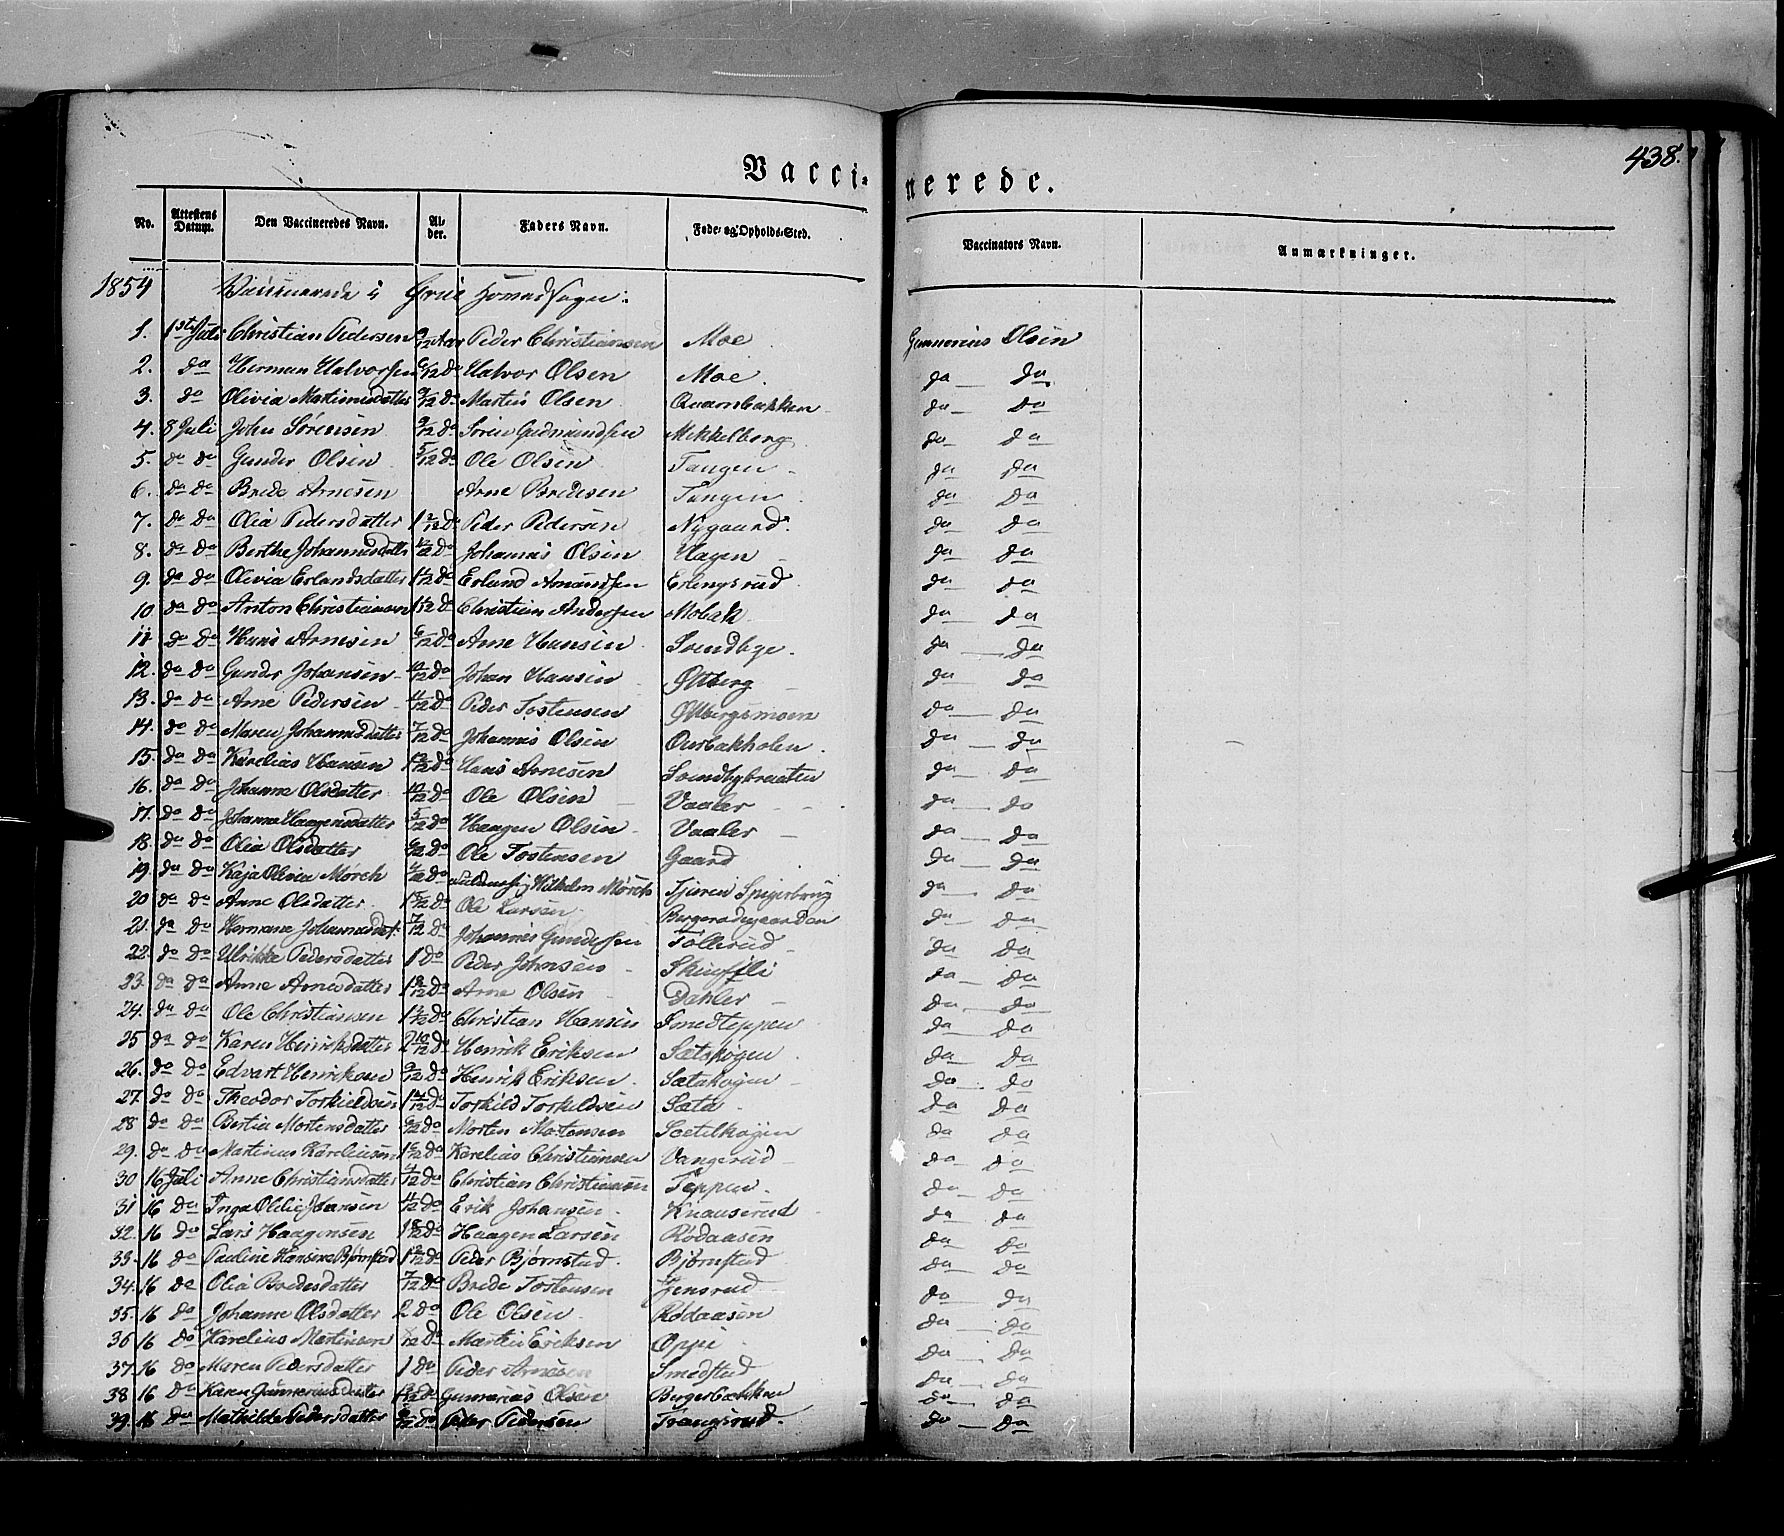 438.
Vacci- nerede.
No. Attestens Datum. Den Vaccineredes Navn. Al- der. Faders Navn. Føde- og Opholds-Sted. Vaccinators Navn. Anmærkninger.
1854 Vaccinerede i Grue Hovedsogn:
1. 1ste Juli Christian Pedersen 9/12 Aar Peder Christiansen Moe Gunnerius Olsen
2. do Herman Halvorsen 6/12 do Halvor Olsen Moe. do do
3. do Olivia Martinusdatter 9/12 do Martin Olsen Quarnbakken do do
4. 8 Juli John Sørensen 9/12 do Søren Gudmundsen Mikkelberg do do
5. do do Gunder Olsen 5/12 do Ole Olsen Tangen do do
6. do do Brede Arnesen Arne Bredesen Tangen do do
7. do do Olia Pedersdatter 1 do Peder Pedersen Nygaard. do do
8. do do Berthe Johannesdatter do Johannes Olsen Hagen do do
9. do do Olivia Erlandsdatter do Erland Amundsen Erlingsrud do do
10 do do Anton Christiansen do Christian Andersen Mobak do do
11. do do Hans Arnesen 6/12 do Arne Hansen Sundbye. do do
12. do do Gunder Johansen 10/12 do Johan Hansen Ottberg do do
13. do do Arne Pedersen 11/12 do Peder Tostensen Ottbergsmoen do do
14. do do Maren Johannesdatter 7/12 do Johannes Olsen Ourbakholen. do do
15. do do Karelius Hansen do Hans Arnesen Sundbybraaten do do
16. do do Johanne Olsdatter 10/12 do Ole Olsen Vaaler do do
17. do do Johanne Haagensdatter 5/12 do Haagen Olsen Vaaler do do
18. do do Olia Olsdatter do Ole Tostensen Gaard do do
19. do do Kaja Olivia Mørch do Wilhelm Mørch Tjuren Spigerbrug do do
20 do do Anne Olsdatter. do Ole Larsen do do
21. do do Hermane Johannesdat. 7/12 do Johannes Gundersen Tollerud do do
22. do do Ulrikke Pedersdatter 1 do Peder Johnsen do do
23. do do Anne Arnesdatter do Arne Olsen Dahler do do
24. do do Ole Christiansen do Christian Hansen Smedteppen do do
25 do do Karen Henriksdatter 2 10/12 do Henrik Eriksen Sætskogen do do
26. do do Edvart Henriksen 9/12 do Henrik Eriksen. Sætskogen do do
27. do do Theodor Torkildsen do Torkild Torkildsen Sæta do do
28 do do Bertia Mortensdatter do Morten Mortensen Sætelskogen do do
29. do do Martinus Kareliussen do Karelius Christiansen Vangerud do do
30 16 Juli Anne Christiansdatter 4/12 do Christian Christiansen Teppen. do do
31 16 do Inga Oline Hansen do Erik Johansen. Knauserud do do
32. 16 do Lars Haagensen do Haagen Larsen Rødaasen do do
33. 16 do Pauline Hansine Bjørnstad do Peder Bjørnstad. Bjørnstad do do
34. 16 do Olia Bredesdatter 7/12 do Brede Tostensen Jensrud do do
35. 16 do Johanne Olsdatter 2 do Ole Olsen Rødaasen do do
36 16 do Karelius Martinsen do Martin Eriksen Oppi do do
37. 16 do Maren Pedersdatter 1 do Peder Arnesen Smedstad do do
38 16 do Karen Gunneriusdatter do Gunnarius Olsen Bergerbakken do do
39. 16 do Mathilde Pedersdatter do Peder Pedersen Trangsrud. do do